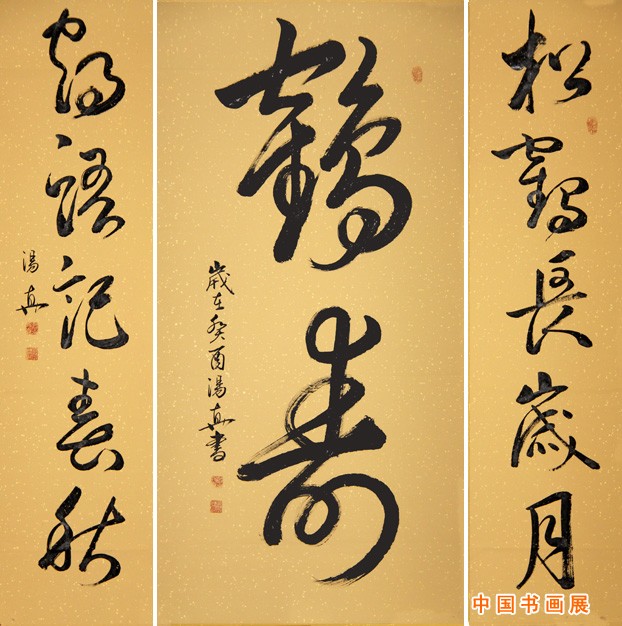 松鶴長歲月
鶴壽
歲在癸酉湯真書
鶴語記春秋
湯真
中国书画展